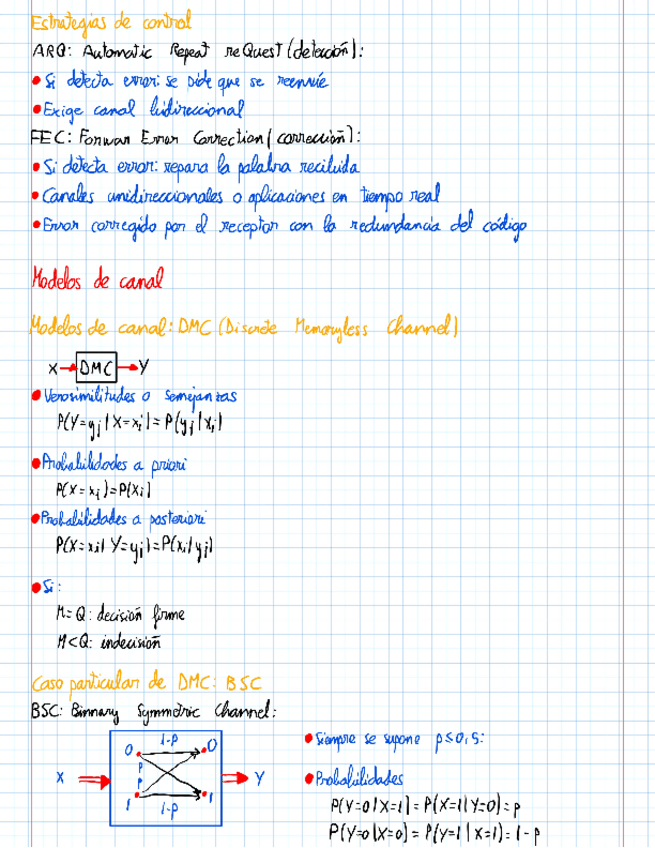 Estrategias de control
ARQ: Automatic Repeat reQuest (detección):
• Si detecta error: se pide que se reenvíe
• Exige canal bidireccional
FEC: Forwar Error Correction (corrección):
• Si detecta error: repara la palabra recibida
• Canales unidireccionales o aplicaciones en tiempo real
• Error corregido por el receptor con la redundancia del código
Modelos de canal
Modelos de canal: DMC (Discrete Memoryless Channel)
X → DMC → Y
• Verosimilitudes o semejanzas
P(Y=yj | X=xi) = P(yj | xi)
• Probabilidades a priori
P(X=xi) = P(xi)
• Probabilidades a posteriori
P(X=xi | Y=yj) = P(xi | yj)
• Si:
M=Q: decisión firme
M<Q: indecisión
Caso particular de DMC: BSC
BSC: Binnary Symmetric Channel:
1-p
0 0
p
X Y
p
1 1
1-p
• Siempre se supone p≤0,5:
• Probabilidades
P(Y=0 | X=1) = P(X=1 | Y=0) = p
P(Y=0 | X=0) = P(Y=1 | X=1) = 1-p